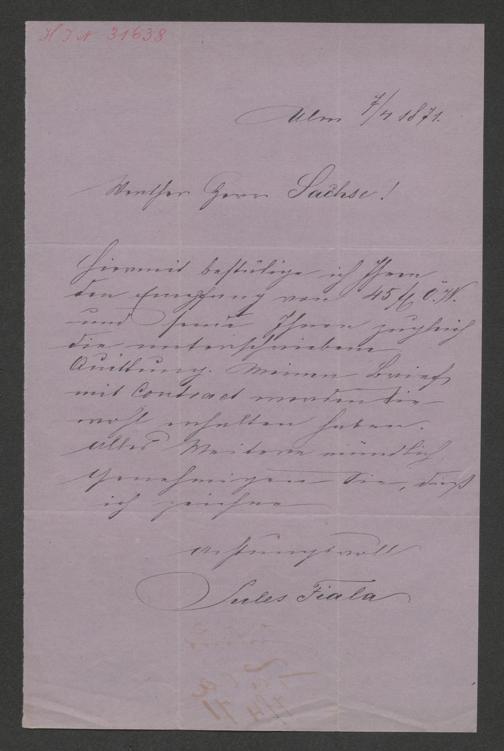 H I N 31638
Ulm 7/4 1871.
Werther Herr Sachse!
Hiermit bestätige ich Ihnen
den Empfang von 45 fl Ö. W.
und sende Ihnen zugleich
die unterschriebene
Quittung. Meinen Brief
mit Contract werden Sie
wohl erhalten haben.
Alles Weitere mündlich
Genehmigen Sie, daß
ich zeichne
Achtungsvoll
Jules Fiala